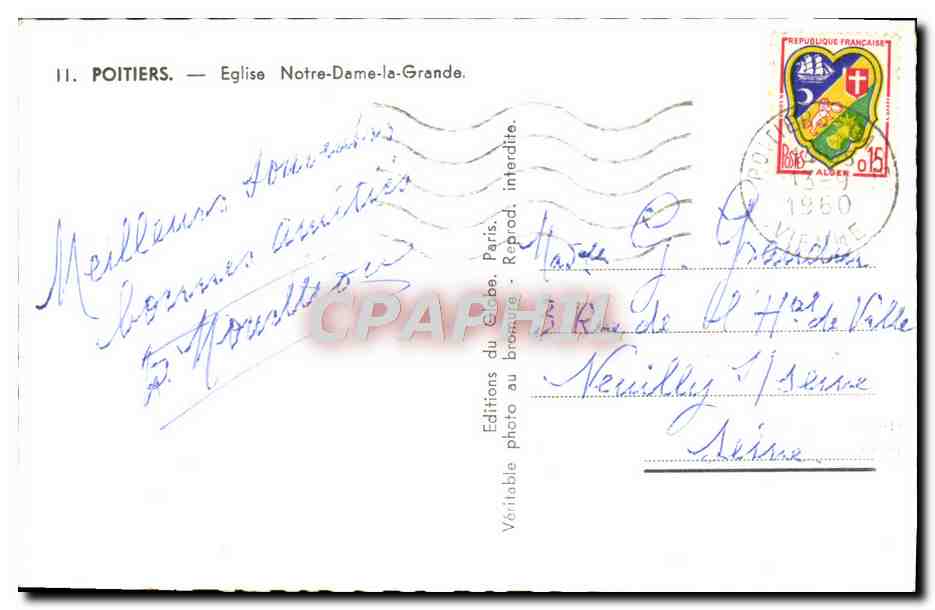 11. POITIERS. — Eglise Notre-Dame-la-Grande.
REPUBLIQUE FRANÇAISE
POSTES 0,15
ALGER
POITIERS
13-9
1960
VIENNE
Meilleurs souvenirs
bonnes amitiés
Editions du Globe, Paris.
Véritable photo au bromure - Reprod. interdite.
CPAPHIL
G.
5 Rue de l'Hel de Ville
Neuilly s/ seine
Seine